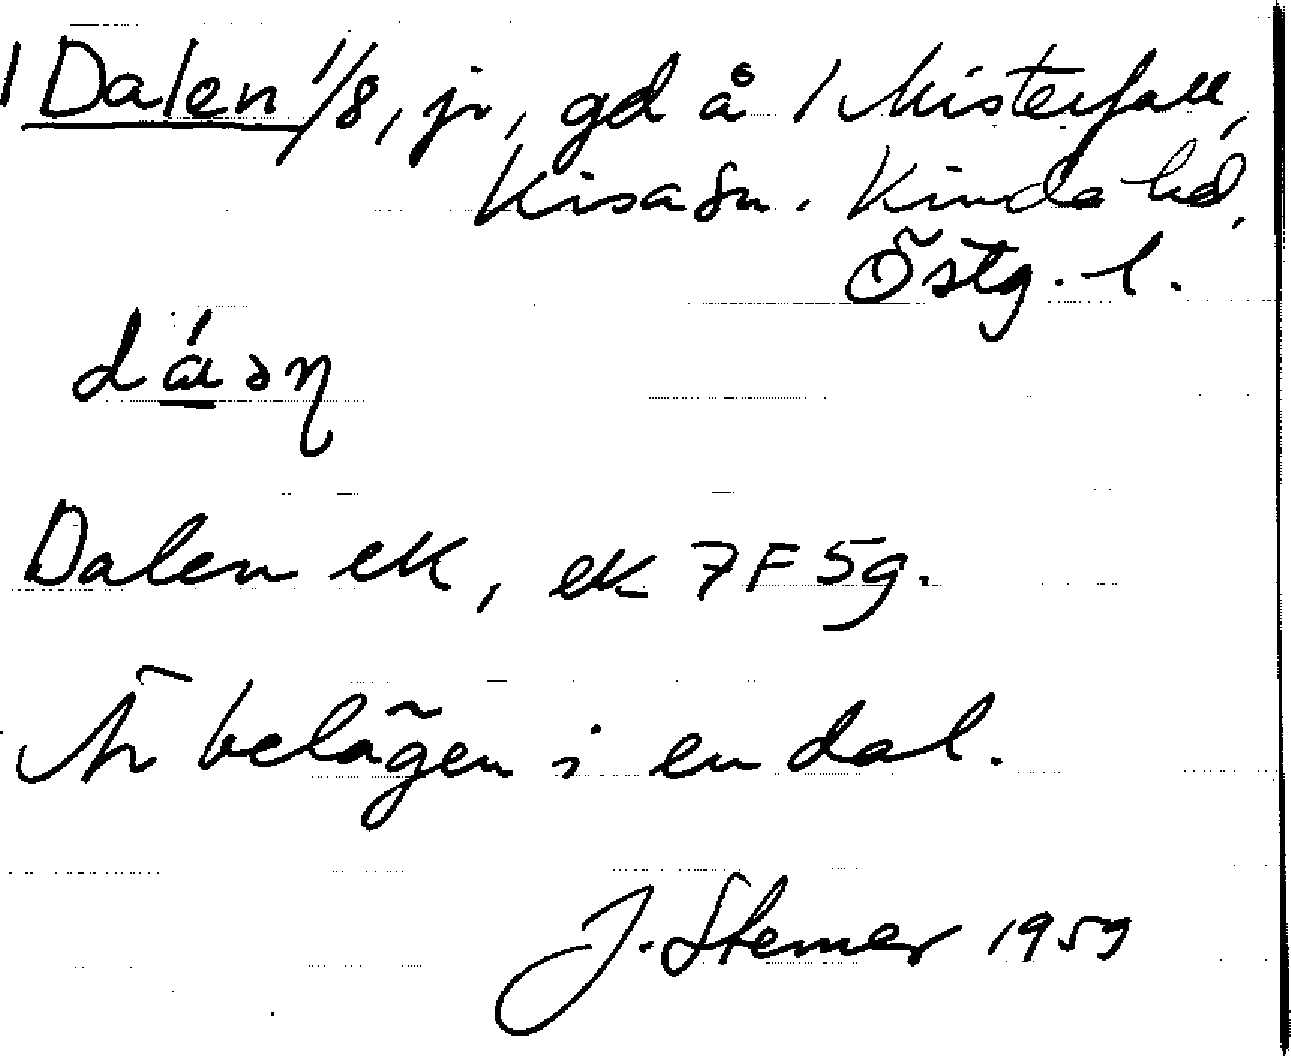 1 Dalen 1/8, jr, gd å 1 Misterfall,
Kisa sn. Kinda hd,
Östg. l.
dá̲ɔƞ
Dalen ek, ek 7F 5g.
Är belägen i en dal.
J. Stemer 1959